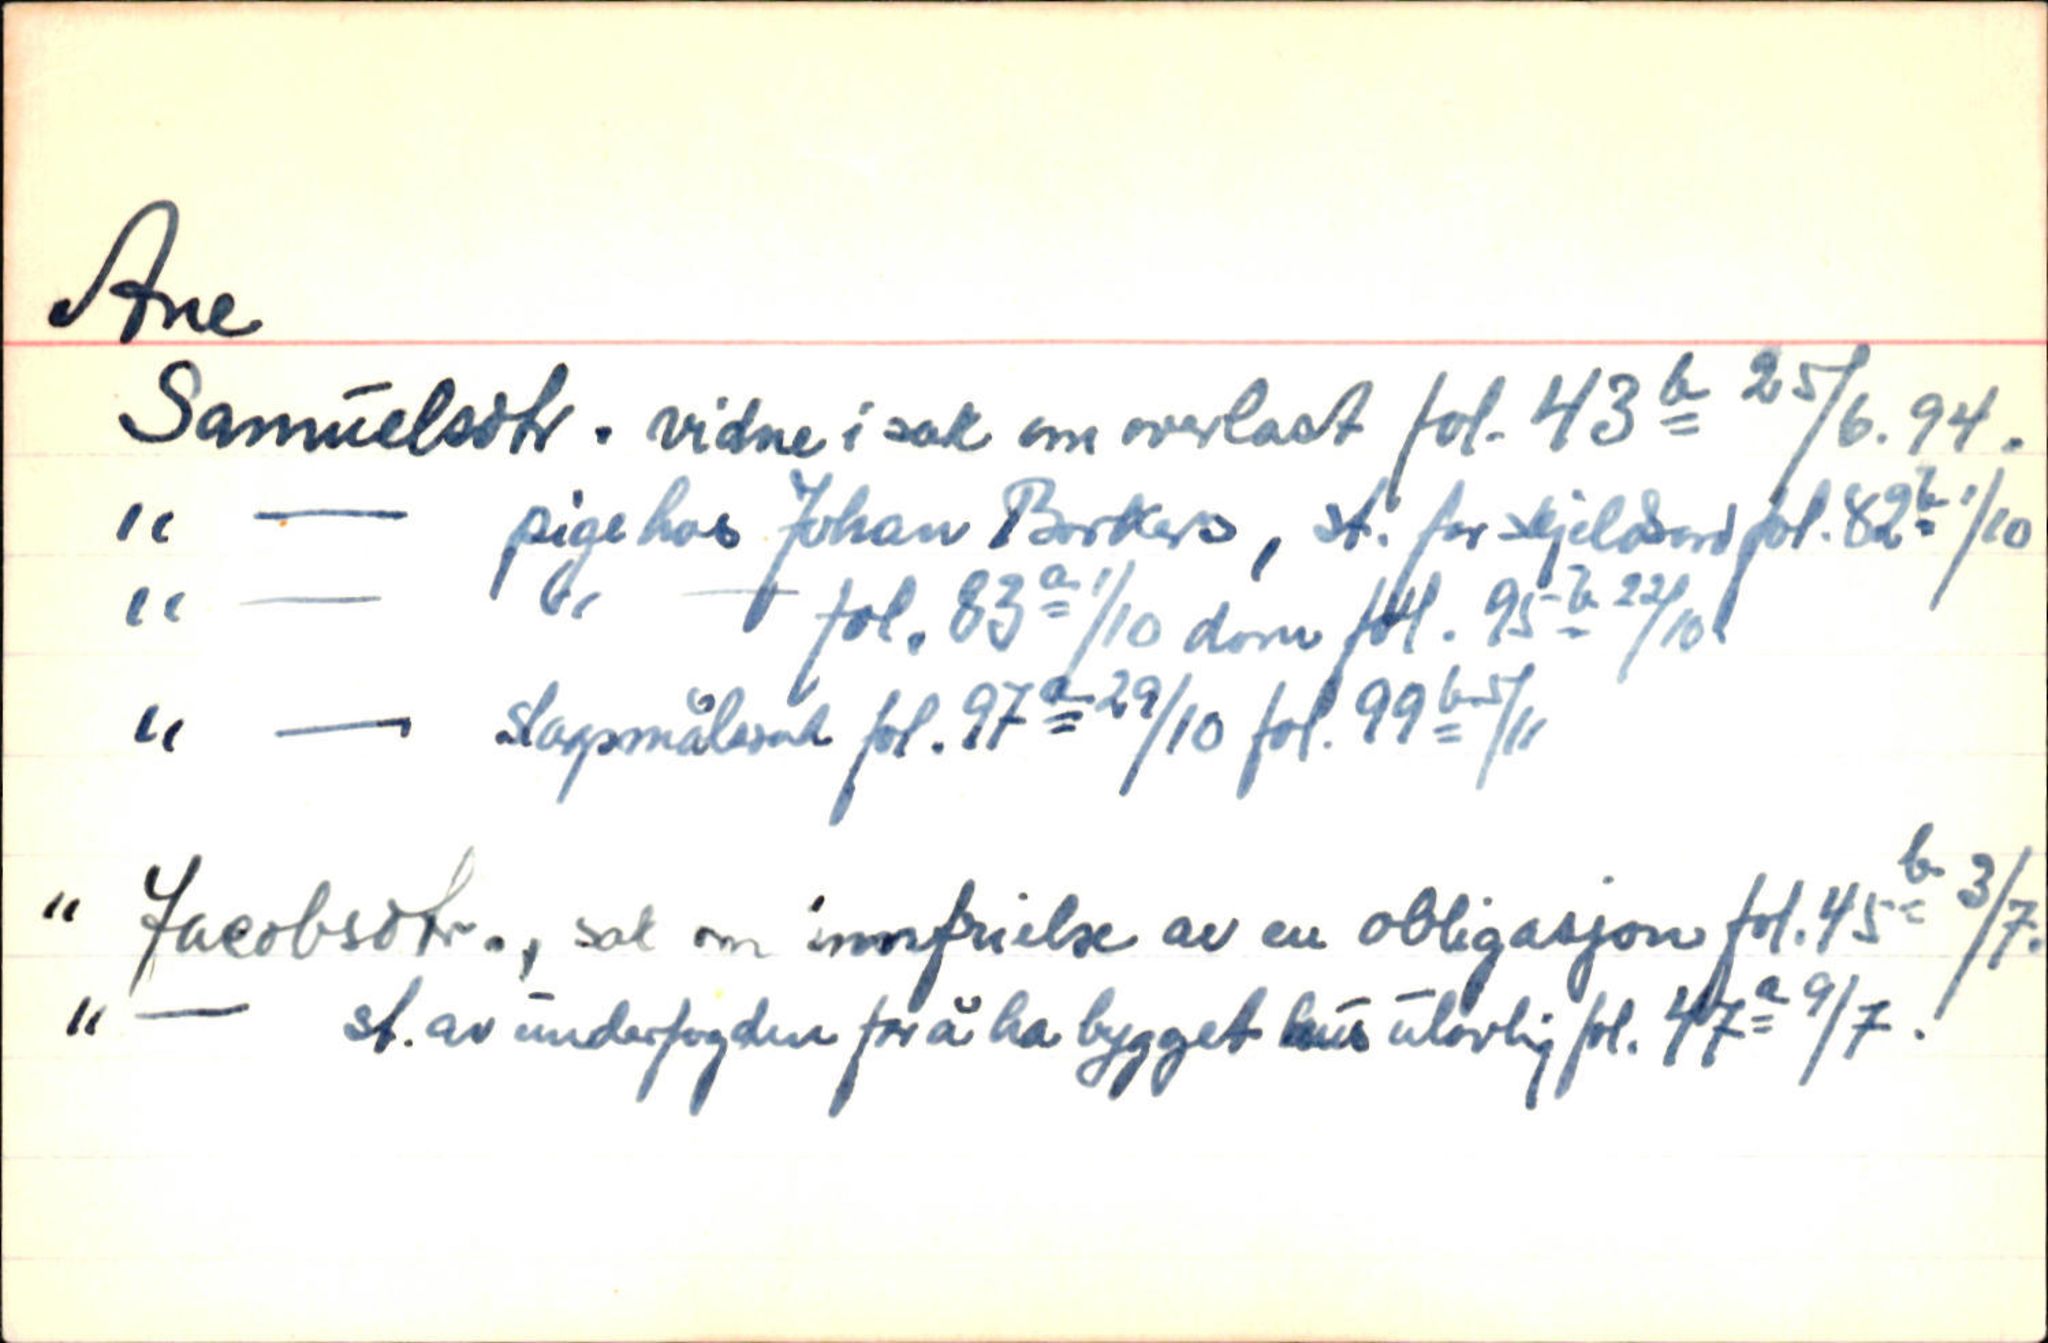 Ane
Samuelsdtr. vidne i sak om overlast fol. 43b 25/6. 94.
" — pige hos Johan Borkers, st. for skjeldsord fol. 82b 1/10
" — " — fol. 83a 1/10 dom fol. 95b 22/10.
" — slagsmålssak fol. 97a 29/10 fol. 99b 5/11
" Jacobsdtr., sak om innfrielse av en obligasjon fol. 45b 3/7.
" — st. av underfogden for å ha bygget hus ulovlig fol. 47a 9/7.